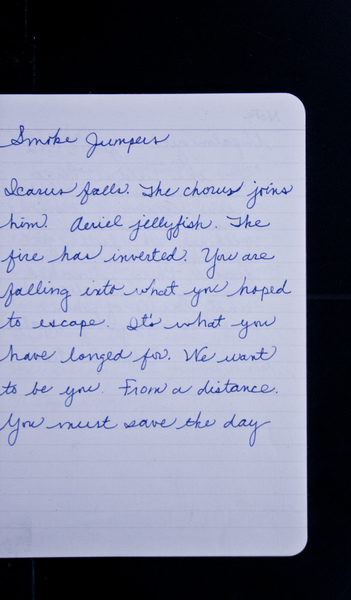 Smoke Jumpers
Icarus falls. The chorus joins
him. Aeriel jellyfish. The
fire has inverted. You are
falling into what you hoped
to escape. It's what you
have longed for. We want
to be you. From a distance.
You must save the day